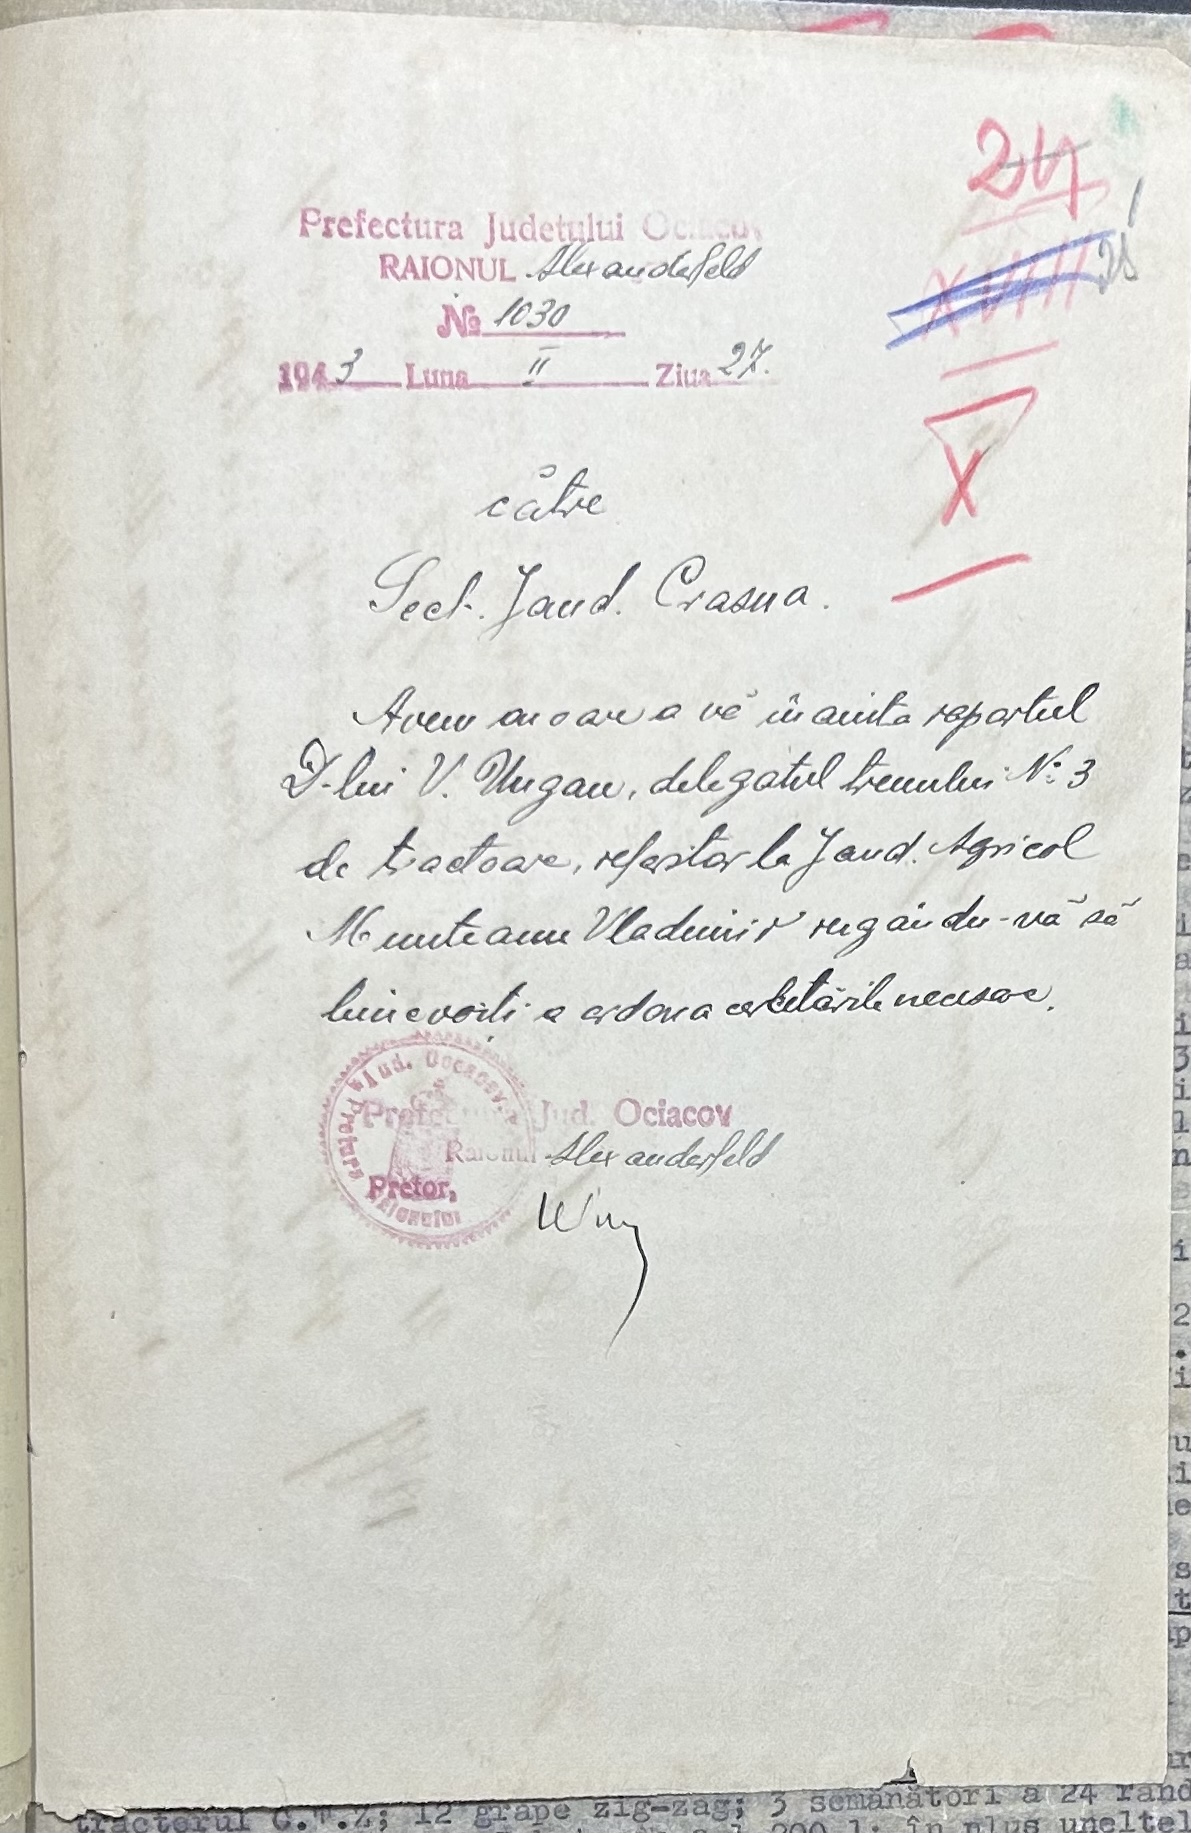 24
Prefectura Judetului Ociacov
RAIONUL Alexanderfeld
XVIII 25
№ 1030
1943 Luna II Ziua 27.
X
către
Sect. Jand. Crasna.
Avem onoare a vă înainta raportul
D-lui V. Ungan, delegatul trenului No 3
de tractoare, refestor la Jand. Agricol
Munteanu Vladimir rugându-vă să
binevoiti a ordona cercetările necesare.
Prefectura Jud. Ociacov
Raionul Alexanderfeld
Pretor,
tractorul C.T.Z; 12 grape zig-zag; 3 semănători a 24 rand
200 l; în plus uneltel